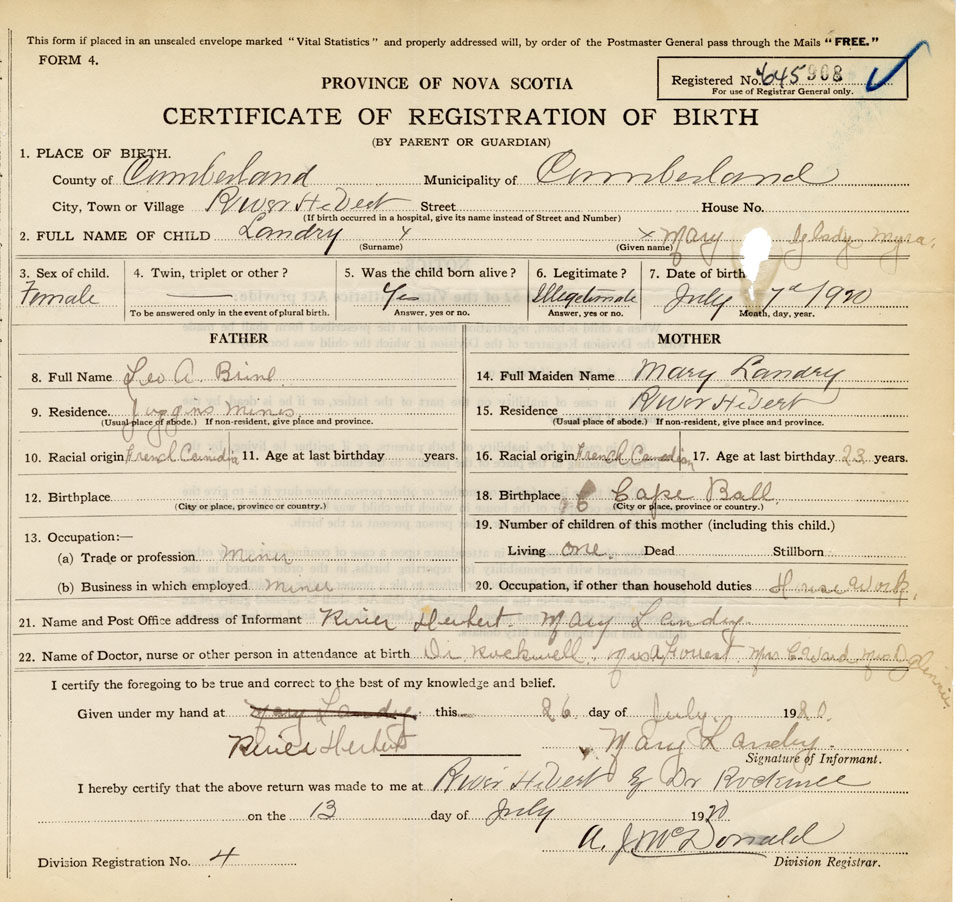 This form if placed in an unsealed envelope marked "Vital Statistics" and properly addressed will, by order of the Postmaster General pass through the Mails "FREE."
FORM 4.
Registered No. 645908
For use of Registrar General only.
PROVINCE OF NOVA SCOTIA
CERTIFICATE OF REGISTRATION OF BIRTH
(BY PARENT OR GUARDIAN)
1. PLACE OF BIRTH.
County of Cumberland Municipality of Cumberland
City, Town or Village River Hebert Street House No.
(If birth occurred in a hospital, give its name instead of Street and Number)
2. FULL NAME OF CHILD Landry x x Mary Glady Myra.
(Surname) (Given name)
3. Sex of child. 4. Twin, triplet or other? 5. Was the child born alive? 6. Legitimate? 7. Date of birth
Female — Yes Illegitimate July 7d 1920
To be answered only in the event of plural birth. Answer, yes or no. Answer, yes or no. Month, day, year.
FATHER
8. Full Name Leo A. Brine
9. Residence. Joggins Mines
(Usual place of abode.) If non-resident, give place and province.
10. Racial origin French Canadia 11. Age at last birthday years.
12. Birthplace
(City or place, province or country.)
13. Occupation:—
(a) Trade or profession Miner
(b) Business in which employed Miner
MOTHER
14. Full Maiden Name Mary Landry
15. Residence River Hebert
(Usual place of abode.) If non-resident, give place and province.
16. Racial origin French Canadian 17. Age at last birthday 23 years.
18. Birthplace Cape Ball
(City or place, province or country.)
19. Number of children of this mother (including this child.)
Living one Dead Stillborn
20. Occupation, if other than household duties House Work.
21. Name and Post Office address of Informant River Herbert. Mary Landry.
22. Name of Doctor, nurse or other person in attendance at birth Dr Rockwell, Mrs A Forrest Mrs E Ward Mrs D
I certify the foregoing to be true and correct to the best of my knowledge and belief.
Given under my hand at Mary Landry this 26 day of July. 1920.
River Herbert Mary Landry.
Signature of Informant.
I hereby certify that the above return was made to me at River Hebert by Dr Rockwell
on the 13 day of July 1920
A. J. McDonald
Division Registration No. 4 Division Registrar.